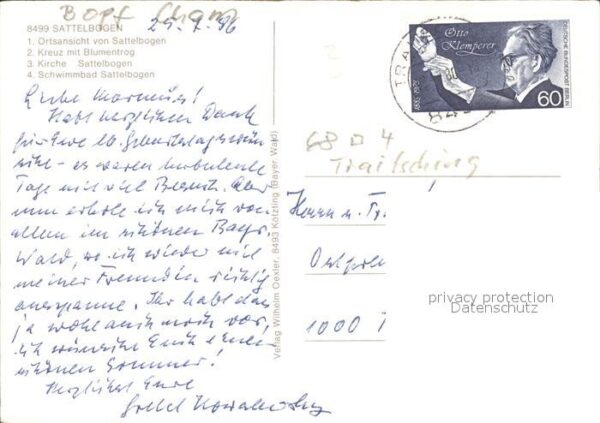 Bopf Cham
8499 SATTELBOGEN
1. Ortsansicht von Sattelbogen
2. Kreuz mit Blumentrog
3. Kirche Sattelbogen
4. Schwimmbad Sattelbogen
29.7.86
Otto
Klemperer
1885-1973
DEUTSCHE BUNDESPOST BERLIN
60
Liebe
Habt herzlichen Dank
für Eure Geburtstagswün
sche - es waren turbulente
Tage mit viel Besuch. Aber
nun erhole ich mich von
allem im schönen Bayr.
Wald, wo ich wieder mit
meiner Freundin richtig
ausspanne. Ihr habt das
ja wohl auch noch vor,
ich wünsche Euch einen
schönen Sommer!
Herzlichst Eure
Kowalewsky
Verlag Wilhelm Oexler, 8493 Kötzting (Bayer. Wald)
68 4
Traitsching
Herrn u. Fr.
1000
privacy protection
Datenschutz